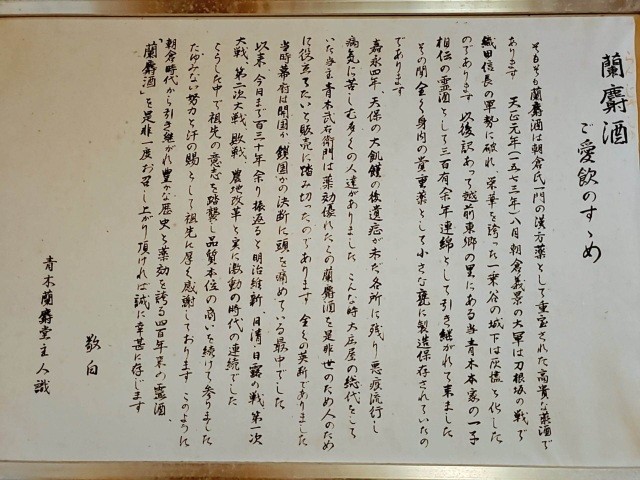 蘭麝酒
ご愛飲のすゝめ
そもそも蘭麝酒は朝倉氏一門の漢方薬として重宝された高貴な薬酒で
あります 天正元年(一五七三年)八月朝倉義景の大軍は刀根坂の戦で
織田信長の軍勢に破れ 栄華を誇った一乗谷の城下は灰燼と化した
のであります 以後訳あって越前東郷の里にある当青木本家の一子
相伝の霊酒として三百有余年連綿として引き継がれて来ました
その間全く身内の貴重薬として小さな甕に製造保存されていたの
であります
嘉永四年、天保の大飢饉の後遺症が未だ各所に残り悪疫流行し
病気に苦しむ多くの人達がありました こんな時大庄屋の総代をして
いた当主青木武右衛門は薬効優れたこの蘭麝酒を是非世のため人のため
に役立てたいと販売に踏み切ったのであります 全くの英断でありました
当時幕府は開国か鎖国かの決断に頭を痛めている最中でした
以来 今日まで百三十年余り振返ると明治維新 日清日露の戦 第一次
大戦、第二次大戦、敗戦、農地改革と実に激動の時代の連続でした
こうした中で祖先の意志を踏襲し品質本位の商いを続けて参りました
たゆみない努力と汗の賜として祖先に厚く感謝しております このように
朝倉時代から引き継がれ豊かな歴史と薬効を誇る四百年来の霊酒
「蘭麝酒」を是非一度お召し上がり頂ければ誠に幸甚に存じます
敬白
青木蘭麝堂主人識